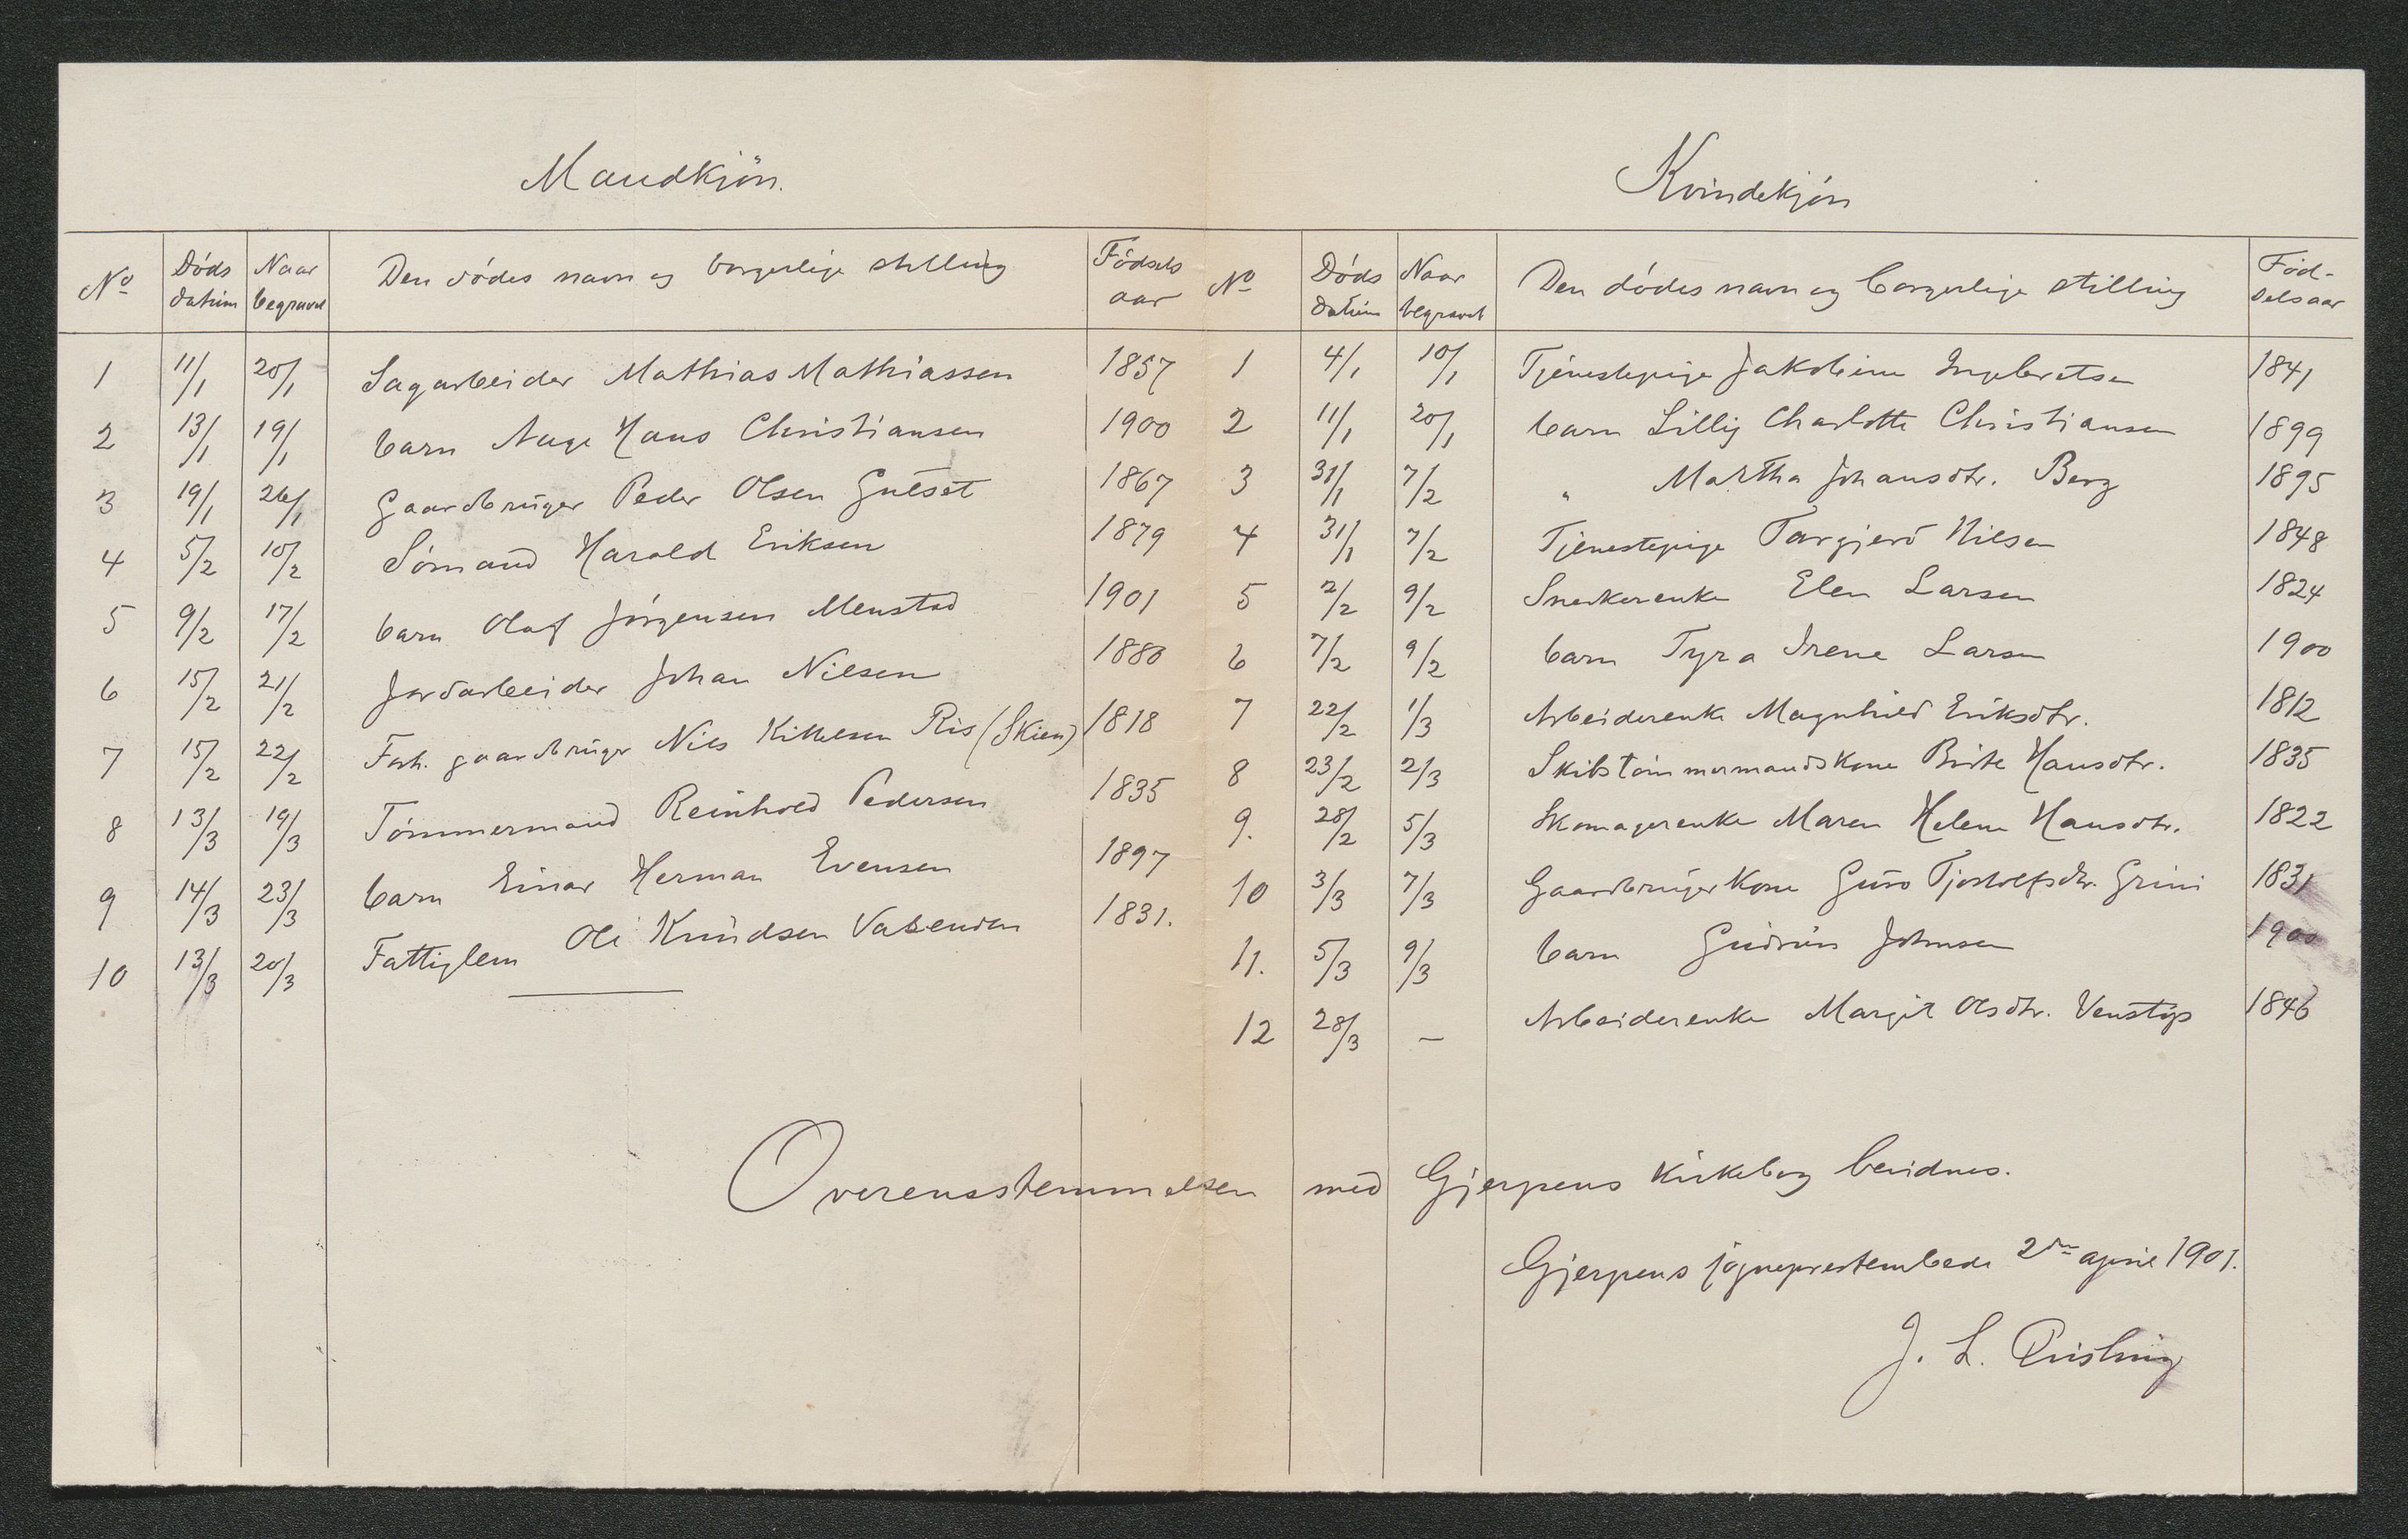 Mandkjøn.
No Døds datum Naar begravet Den dødes navn og borgerlige stilling Fødsels aar
1 11/1 20/1 Sagarbeider Mathias Mathiassen 1857
2 13/1 19/1 barn Aage Hans Christiansen 1900
3 19/1 26/1 Gaardbruger Peder Olsen Gulset 1867
4 5/2 10/2 Sømand Harald Eriksen 1879
5 9/2 17/2 barn Olaf Jørgensen Menstad 1901
6 15/2 21/2 Jordarbeider Johan Nilsen 1880
7 15/2 22/2 Forh. gaardbruger Nils Kittelsen Ris (Skien) 1818
8 13/3 19/3 Tømmermand Reinhold Pedersen 1835
9 14/3 23/3 barn Einar Herman Evensen 1897
10 13/3 20/3 Fattiglem Ole Knudsen 1831.
Kvindekjøn
No Døds datum Naar begravet Den dødes navn og borgerlige stilling Fødselsaar
1 4/1 10/1 Tjenestepige Jakobine Ingebretsen 1841
2 11/1 20/1 barn Lilly Charlotte Christiansen 1899
3 31/1 7/2 " Martha Johansdtr. Berg 1895
4 31/1 7/2 Tjenestepige Torgjerd Nilsen 1848
5 2/2 9/2 Snedkerenke Elen Larsen 1824
6 7/2 9/2 barn Tyra Irene Larsen 1900
7 22/2 1/3 Arbeiderenke Magnhild Eriksdtr. 1812
8 23/2 2/3 Skibstømmermandskone Birte Hansdtr. 1835
9. 28/2 5/3 Skomagerenke Maren Helene Hansdtr. 1822
10 3/3 7/3 Gaardbrugerkone Guro Tjostolfsdtr. Grini 1831
11. 5/3 9/3 barn Gudrun Johnsen 1900
12 28/3 — Arbeiderenke Margit Olsdtr. Venstøp 1846
Overensstemmelsen med Gjerpens kirkebog bevidnes.
Gjerpens sogneprestembede 2den april 1901.
J. L. Qvisling